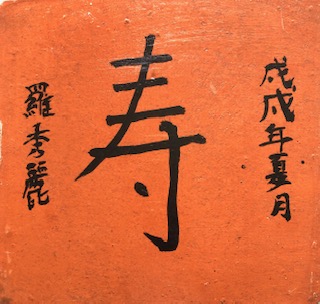 戊戌年夏月
寿
羅秀麗